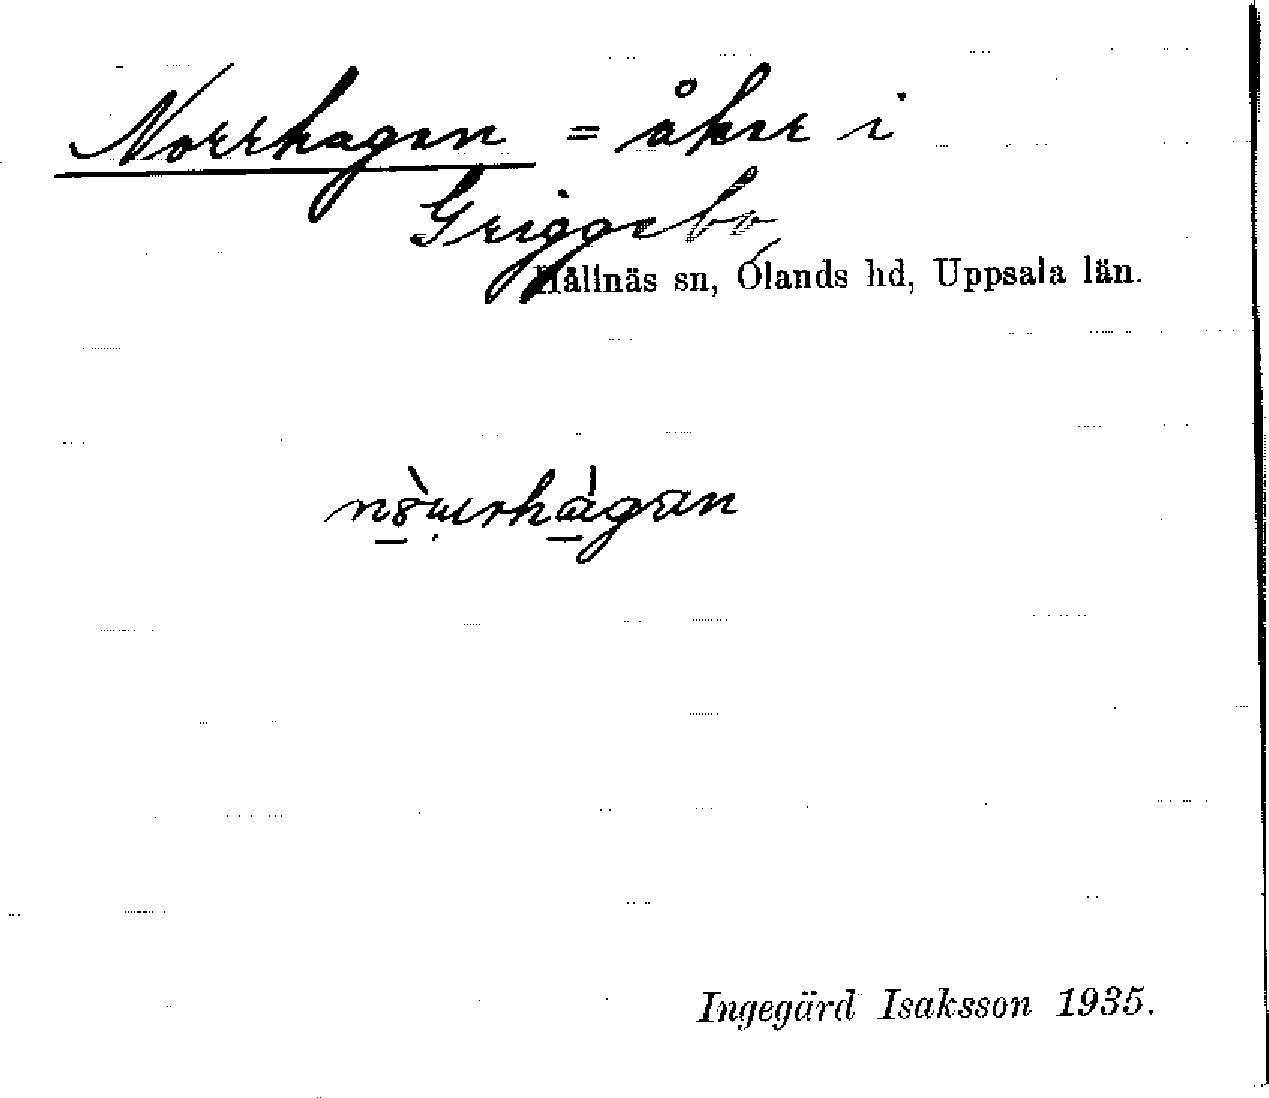 Norrhagen = åker i
Griggebo
Hållnäs sn, Olands hd, Uppsala län.
Ingegärd Isaksson 1935.